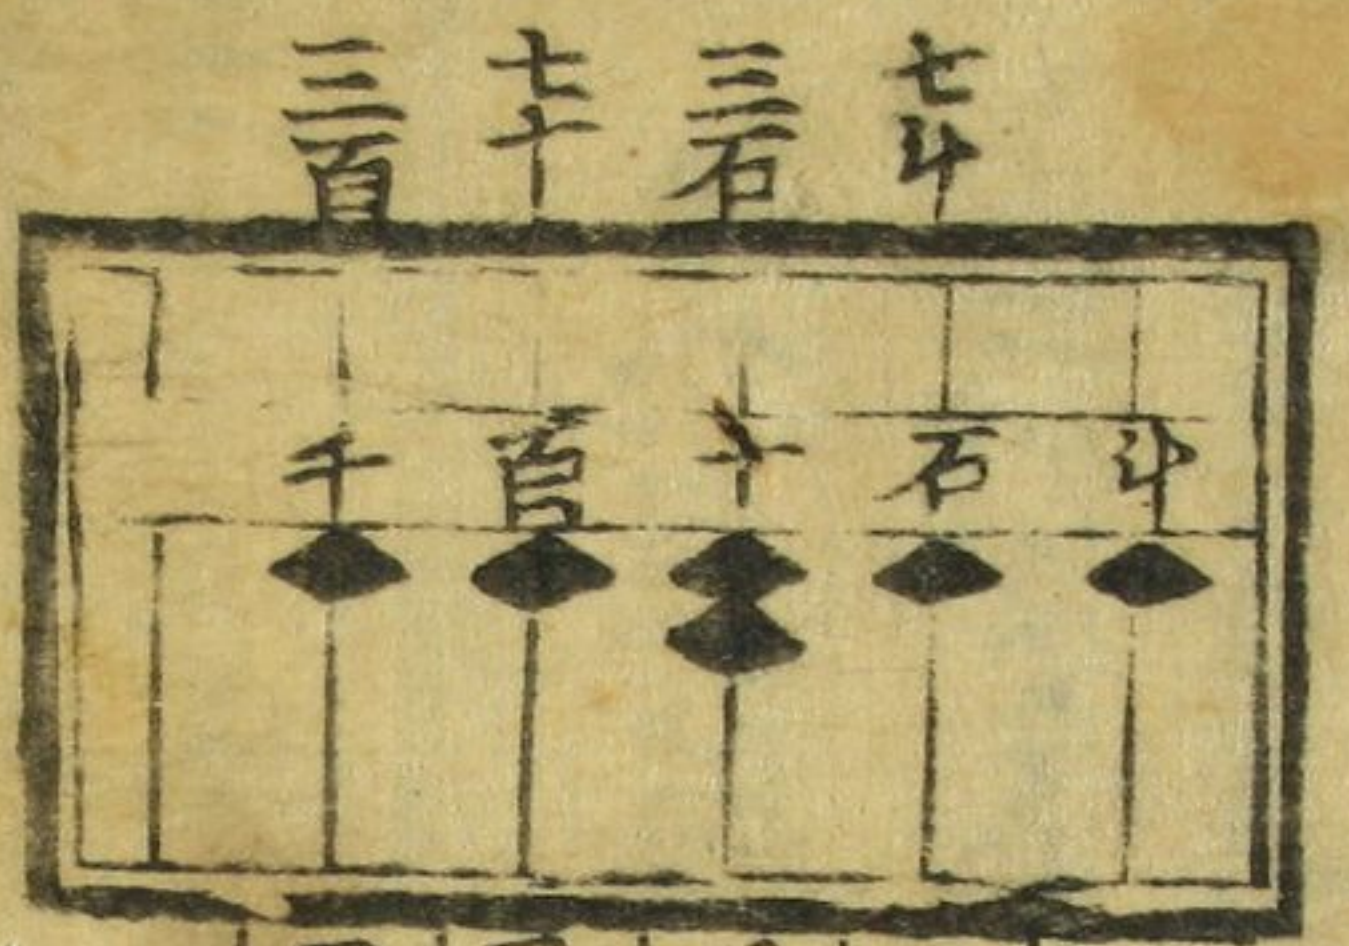 三百 七十 三石 七斗
千 百 十 石 斗